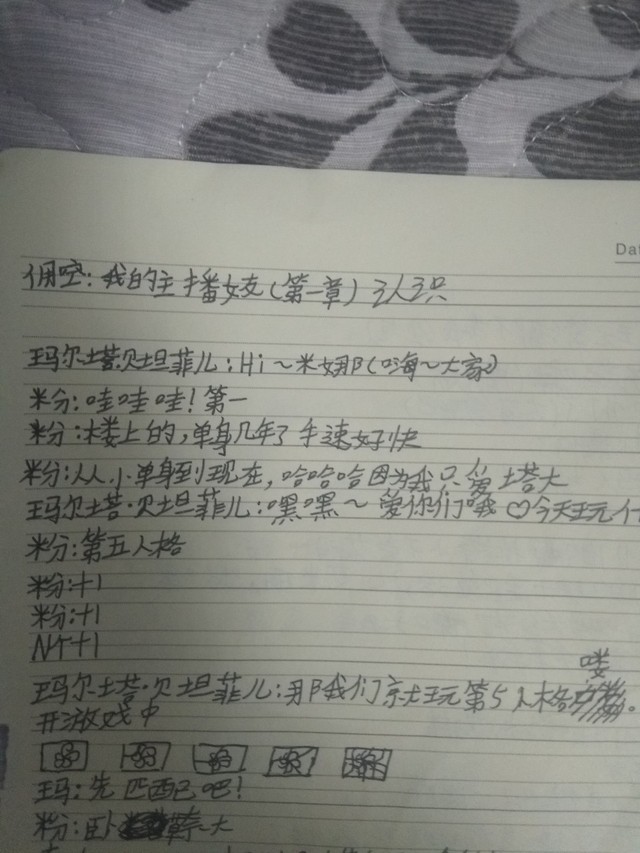 Dat
佣空:我的主播女友(第一章)认识
玛尔塔·贝坦菲儿:Hi~米娜(嗨~大家)
粉:哇哇哇!第一
粉:楼上的,单身几年了手速好快
粉:从小单身到现在,哈哈哈因为我只爱塔大
玛尔塔·贝坦菲儿:嘿嘿~爱你们哦♡今天玩什
粉:第五人格
粉:+1
粉:+1
N个+1
玛尔塔·贝坦菲儿:那我们就玩第5人格喽。
开游戏中
玛:先匹配吧!
粉:卧 大